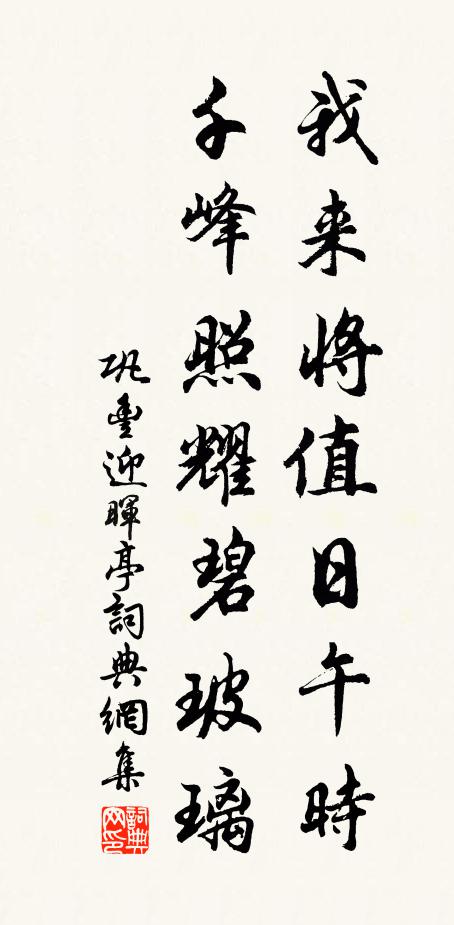 我来將值日午時
千峰照耀碧玻璃
巩豐迎暉亭詞典網集
詞典网印